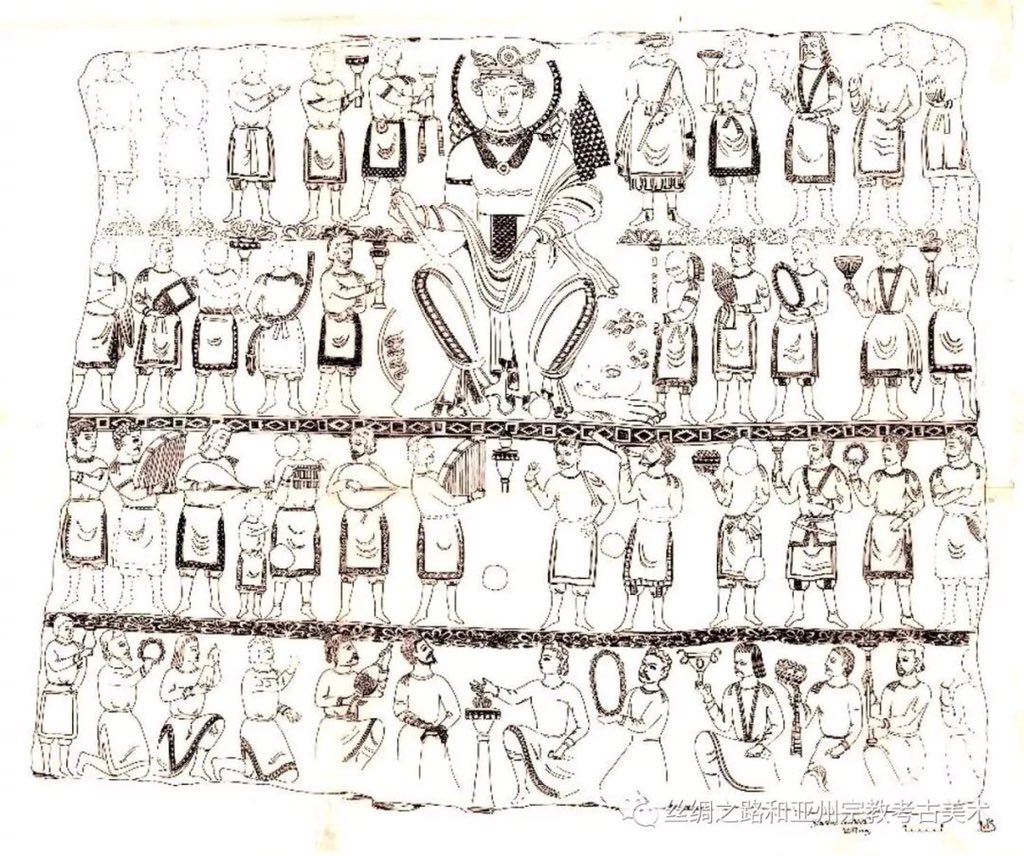 丝绸之路和亚州宗教考古美术